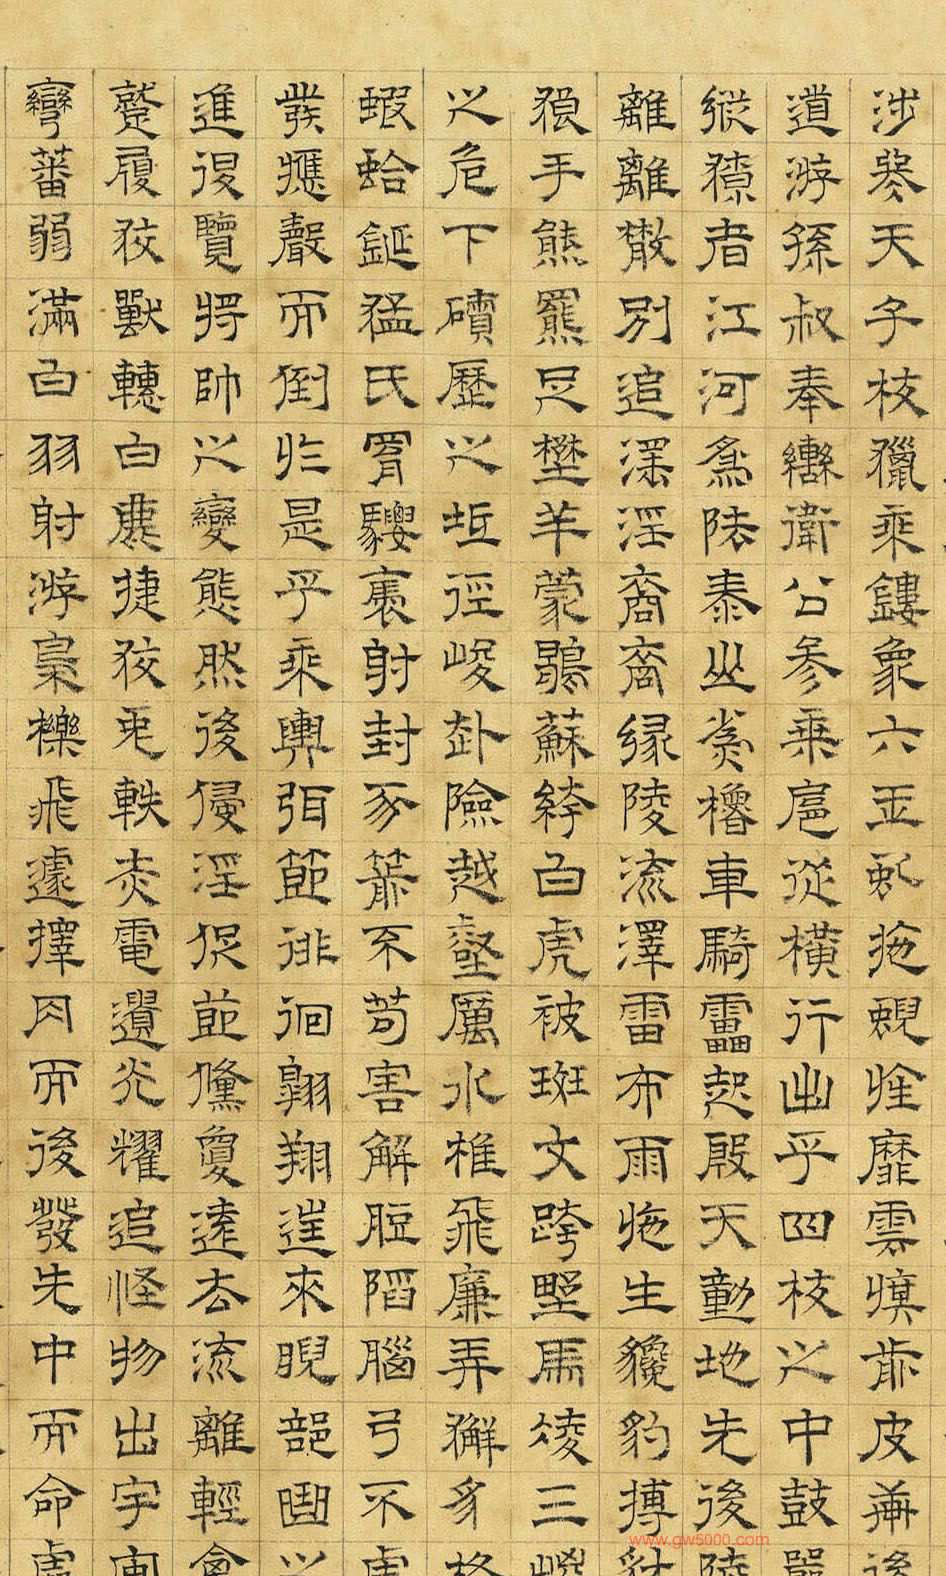 涉冬天子校獵乘鏤象六玉虯拖蜺旌靡雲旗前皮軒後
道游孫叔奉轡衛公參乘扈從橫行出乎四校之中鼓嚴
縱獠者江河為阹泰山為櫓車騎靁起殷天動地先後陸
離離散別追淫淫裔裔緣陵流澤雷布雨施生貔豹搏豺
狼手熊羆足壄羊蒙鶡蘇絝白虎被斑文跨壄馬凌三嵕
之危下磧歷之坻徑峻赴險越壑厲水椎飛廉弄獬豸格
蝦蛤鋋猛氏羂騕褭射封豕箭不苟害解脰陷腦弓不虛
發應聲而倒於是乎乘輿弭節徘徊翱翔往來睨部曲之
進退覽將帥之變態然後侵淫促節儵夐遠去流離輕禽
蹵履狡獸轊白鹿捷狡兔軼赤電遺光耀追怪物出宇宙
彎蕃弱滿白羽射游梟櫟飛遽擇肉而後發先中而命處
www.gw5000.com